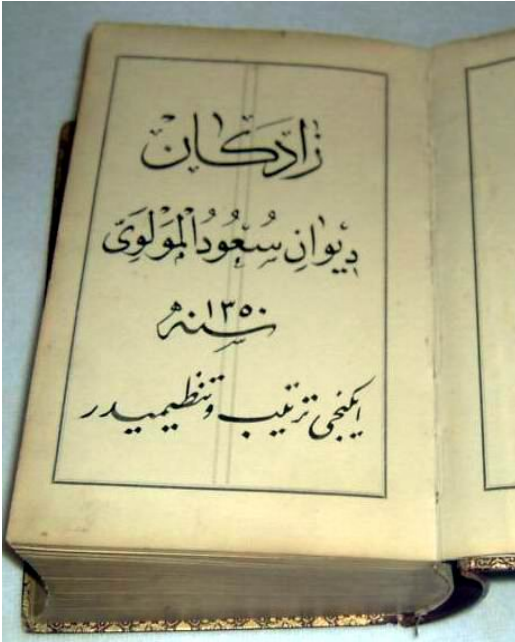 زادكان
ديوان سعود المولوى
سنه ١٣٥٠
ايكنجى ترتيب و تنظيميدر